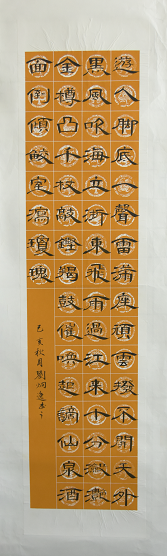 遊人脚底一聲雷滿座頑雲撥不開天外
黑風吹海立浙東飛雨過江來十分瀲灔
金樽凸千杖敲鏗羯鼓催喚起謫仙泉洒
面倒傾鮫室瀉瓊瑰
己亥秋月劉炳建书